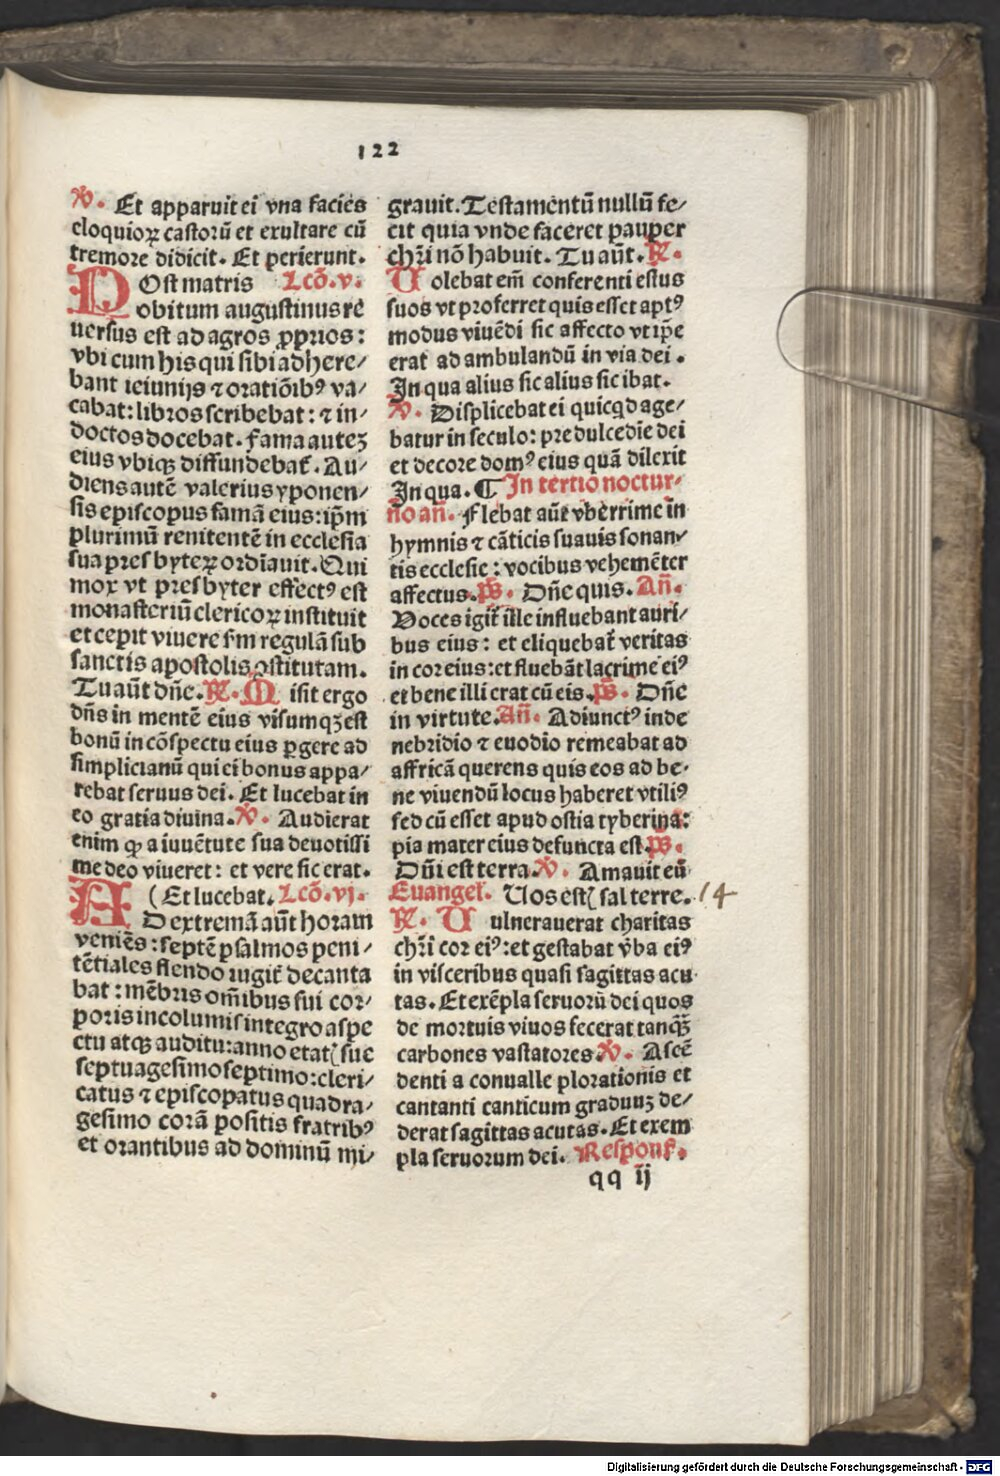 122
℣. Et apparuit ei vna facies
eloquioꝝ castorū et exultare cū
tremore didicit. Et perierunt.
POst matris Lcō.v.
obitum augustinus re
uersus est ad agros ꝓprios:
vbi cum his qui sibi adhere/
bant ieiunijs ⁊ oratiōibꝰ va/
cabat: libros scribebat: ⁊ in/
doctos docebat. fama auteꝫ
eius vbiqꝫ diffundebat̄. Au/
diens autē valerius yponen/
sis episcopus famā eius: ip̄m
plurimū renitentē in ecclesia
sua presbyteꝝ ordīauit. Qui
mox vt presbyter effectꝰ est
monasteriū clericoꝝ instituit
et cepit viuere s̄m regulā sub
sanctis apostolis ꝯstitutam.
Tu aūt dn̄e. ℟. Misit ergo
dn̄s in mentē eius visumqꝫ est
bonū in cōspectu eius ꝑgere ad
simplicianū qui ei bonus appa/
rebat seruus dei. Et lucebat in
eo gratia diuina. ℣. Audierat
enim ꝙ a iuuētute sua deuotissi
me deo viueret: et vere sic erat.
(Et lucebat. Lcō.vj.
AD extremā aūt horam
veniēs: septē psalmos peni/
tētiales flendo iugit̄ decanta
bat: mēbris om̄ibus sui cor/
poris incolumis integro aspe
ctu atqꝫ auditu: anno etatꝭ sue
septuagesimoseptimo: cleri/
catus ⁊ episcopatus quadra/
gesimo corā positis fratribꝰ
et orantibus ad dominū mi/
grauit. Testamentū nullū fe/
cit quia vnde faceret pauper
chr̄i nō habuit. Tu aūt. ℟.
Uolebat em̄ conferenti estus
suos vt proferret quis esset aptꝰ
modus viuēdi sic affecto vt ip̄e
erat ad ambulandū in via dei.
In qua alius sic alius sic ibat.
℣. Displicebat ei quicqd age/
batur in seculo: pre dulcedīe dei
et decore domꝰ eius quā dilexit
In qua. ¶ In tertio noctur/
no an̄. Flebat aūt vberrime in
hymnis ⁊ cāticis suauis sonan/
tis ecclesie: vocibus vehemēter
affectus. p̄s. Dn̄e quis. An̄.
Voces igit̄ ille influebant auri/
bus eius: et eliquebat̄ veritas
in cor eius: et fluebāt lacrime eiꝰ
et bene illi erat cū eis. p̄s. Dn̄e
in virtute. An̄. Adiunctꝰ inde
nebridio ⁊ euodio remeabat ad
affricā querens quis eos ad be-
ne viuendū locus haberet vtiliꝰ
sed cū esset apud ostia tyberina:
pia mater eius defuncta est. p̄s.
Dn̄i est terra. ℣. Amauit eū
Euangel̄. Uos estꝭ sal terre. 14
℟. Uulnerauerat charitas
chr̄i cor eiꝰ: et gestabat v̄ba eiꝰ
in visceribus quasi sagittas acu
tas. Et exēpla seruorū dei quos
de mortuis viuos fecerat tanqꝫ
carbones vastatores. ℣. Ascē
denti a conualle plorationis et
cantanti canticum graduuꝫ de/
derat sagittas acutas. Et exem
pla seruorum dei. Respons.
qq ij
Digitalisierung gefördert durch die Deutsche Forschungsgemeinschaft - DFG